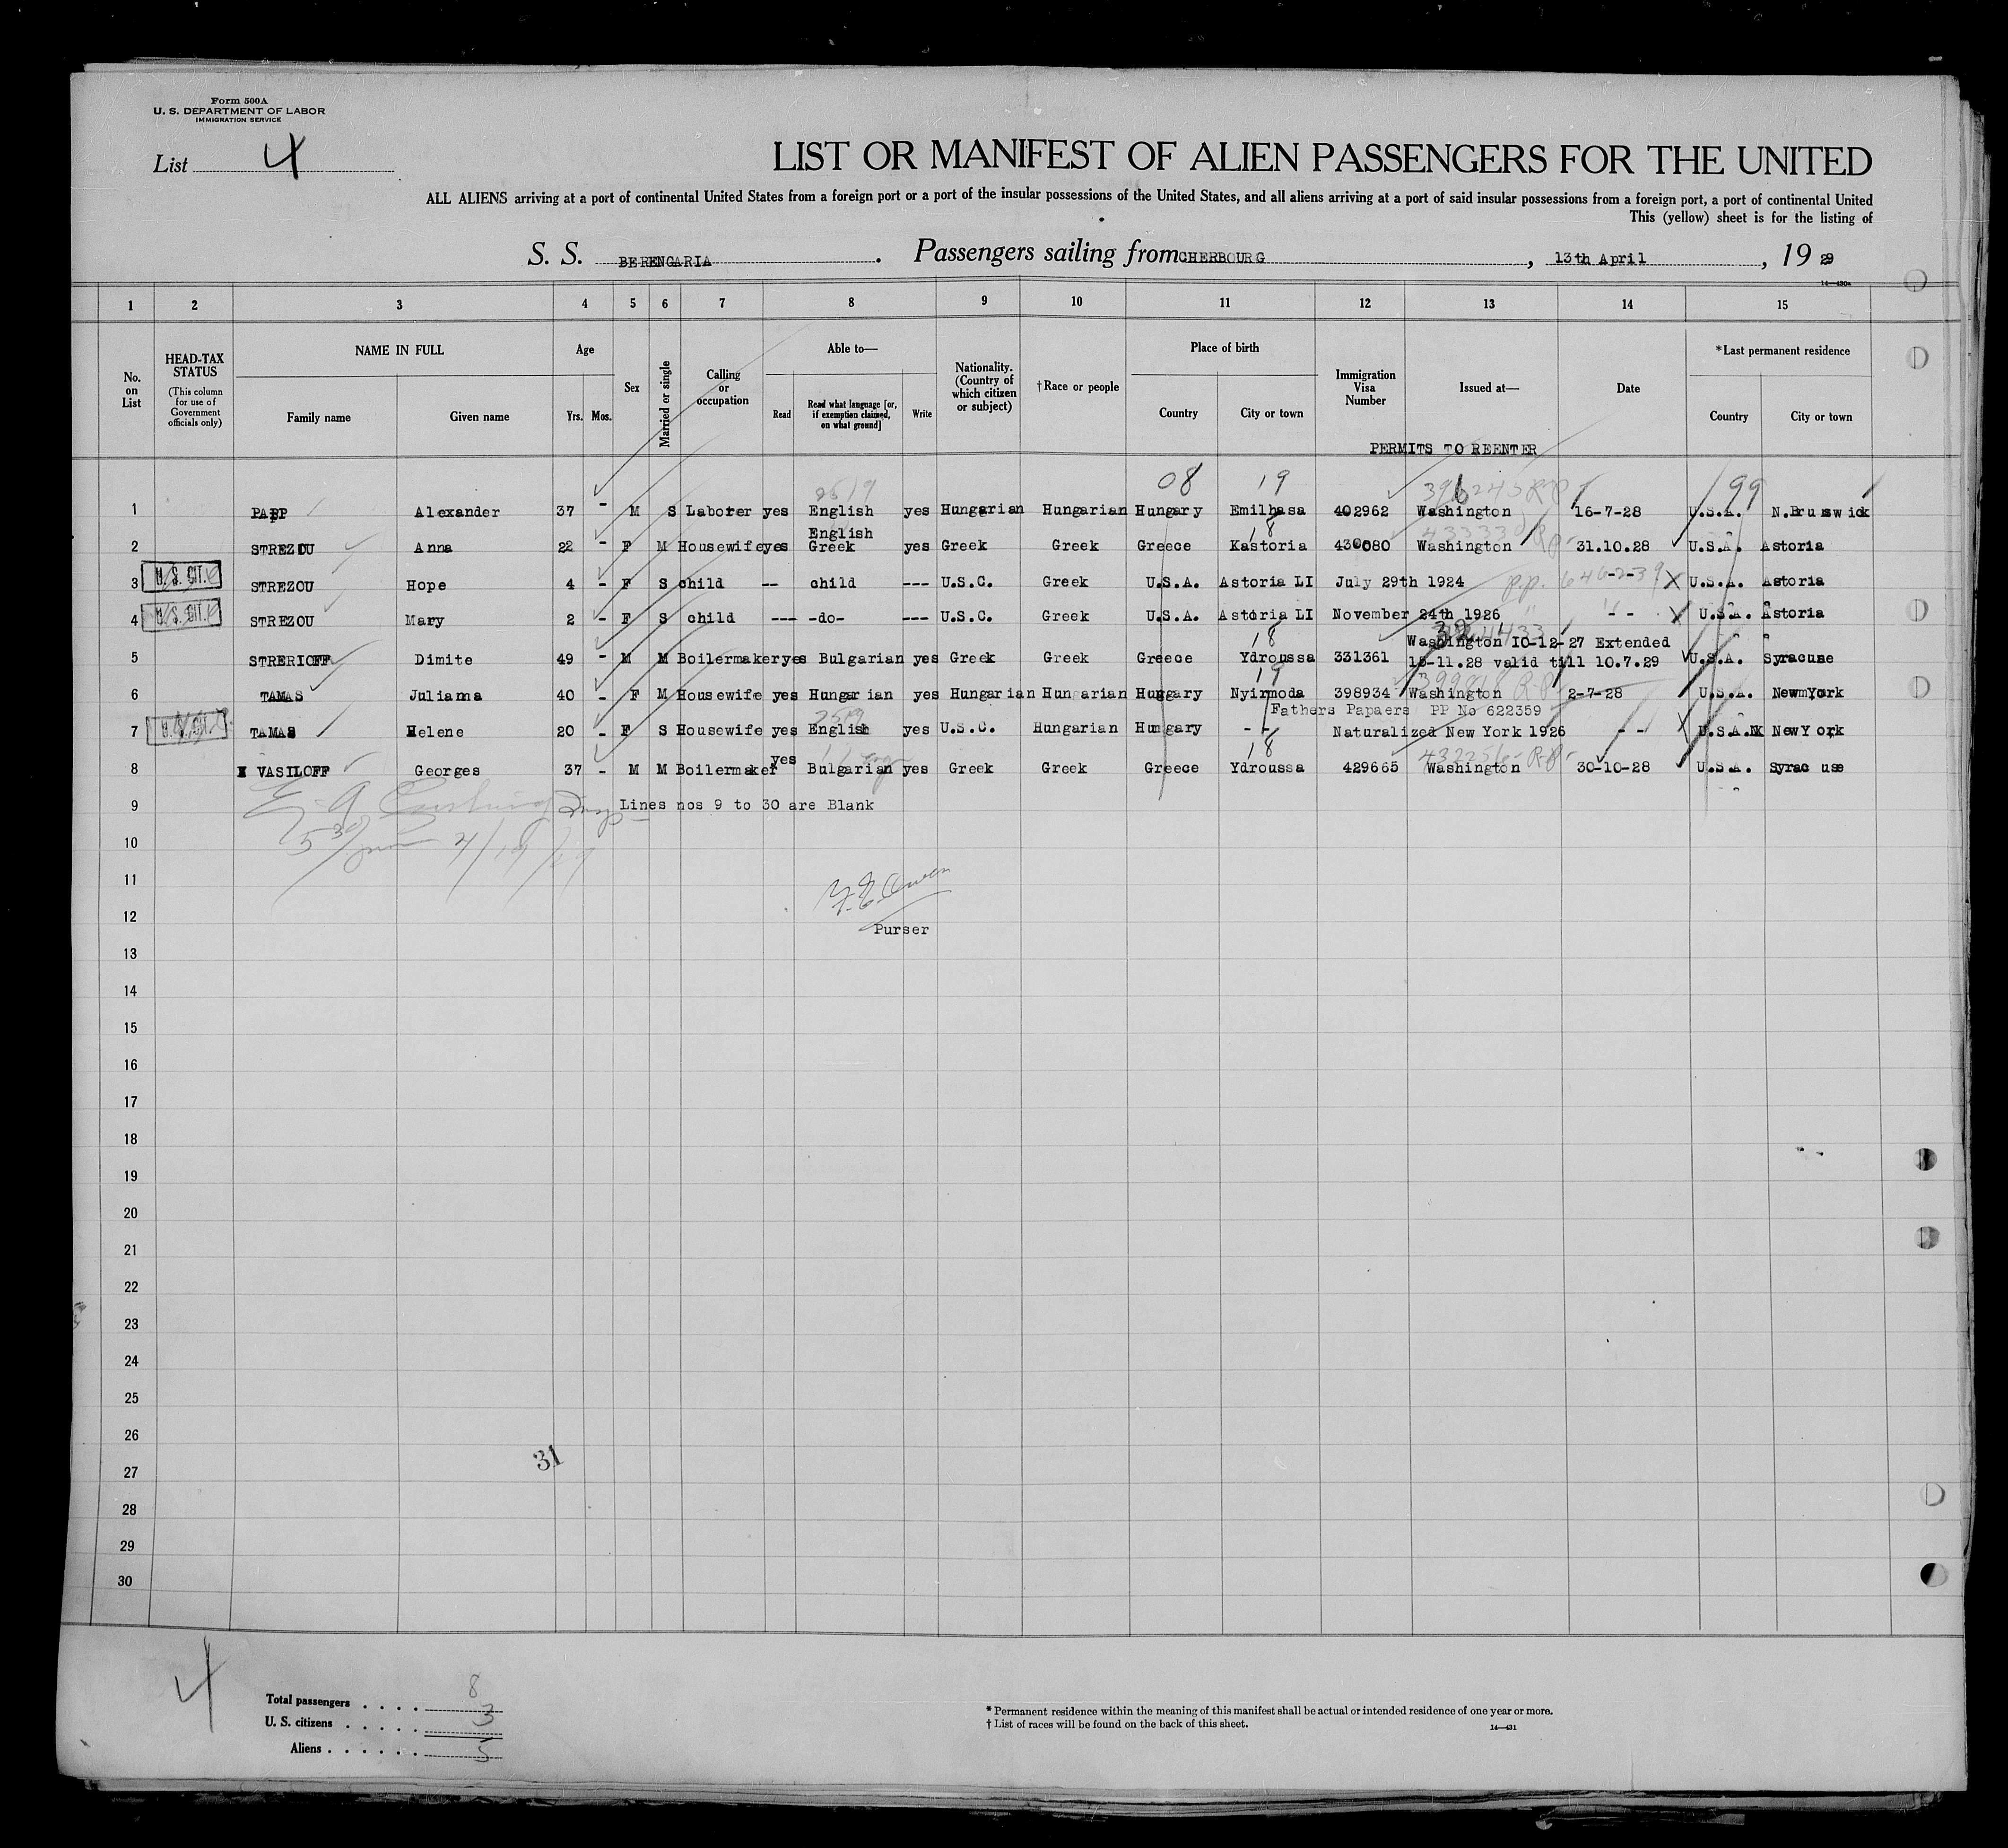 Form 500A
U. S. DEPARTMENT OF LABOR
IMMIGRATION SERVICE
List 4
LIST OR MANIFEST OF ALIEN PASSENGERS FOR THE UNITED
ALL ALIENS arriving at a port of continental United States from a foreign port or a port of the insular possessions of the United States, and all aliens arriving at a port of said insular possessions from a foreign port, a port of continental United
This (yellow) sheet is for the listing of
S. S. BERENGARIA . Passengers sailing from CHERBOURG , 13th April , 19 29
14—430a
1 2 3 4 5 6 7 8 9 10 11 12 13 14 15
No. on List
HEAD-TAX STATUS
(This column for use of Government officials only)
NAME IN FULL
Family name Given name
Age
Yrs. Mos.
Sex
Married or single
Calling or occupation
Able to—
Read Read what language [or, if exemption claimed, on what ground] Write
Nationality. (Country of which citizen or subject)
†Race or people
Place of birth
Country City or town
Immigration Visa Number
Issued at—
Date
*Last permanent residence
Country City or town
PERMITS TO REENTER
08 19 99
1 PAPP Alexander 37 - M S Laborer yes English yes Hungarian Hungarian Hungary Emilhasa 402962 Washington 16-7-28 U.S.A. N.Brunswick
English 18
2 STREZOU Anna 22 - F M Housewife yes Greek yes Greek Greek Greece Kastoria 430080 Washington 31.10.28 U.S.A. Astoria
3 U.S. CIT. STREZOU Hope 4 - F S child -- child --- U.S.C. Greek U.S.A. Astoria LI July 29th 1924 - - U.S.A. Astoria
4 U.S. CIT. STREZOU Mary 2 - F S child --- -do- --- U.S.C. Greek U.S.A. Astoria LI November 24th 1926 - - U.S.A. Astoria
18 Washington 10-12-27 Extended
5 STRERIOFF Dimite 49 - M M Boilermaker yes Bulgarian yes Greek Greek Greece Ydroussa 331361 15-11.28 valid till 10.7.29 U.S.A. Syracuse
19
6 TAMAS Juliama 40 - F M Housewife yes Hungarian yes Hungarian Hungarian Hungary Nyirmoda 398934 Washington 2-7-28 U.S.A. NewmYork
Fathers Papaers PP No 622359
7 U.S. CIT. TAMAS Helene 20 - F S Housewife yes English yes U.S.C. Hungarian Hungary - - Naturalized New York 1926 - - U.S.A. NewYork
18
8 VASILOFF Georges 37 - M M Boilermaker yes Bulgarian yes Greek Greek Greece Ydroussa 429665 Washington 30-10-28 U.S.A. Syracuse
9 Lines nos 9 to 30 are Blank
10
11
12
Purser
13
14
15
16
17
18
19
20
21
22
23
24
25
26
31
27
28
29
30
4
Total passengers . . . . 8
U. S. citizens . . . . . 3
Aliens . . . . . . 5
* Permanent residence within the meaning of this manifest shall be actual or intended residence of one year or more.
† List of races will be found on the back of this sheet.
14—431